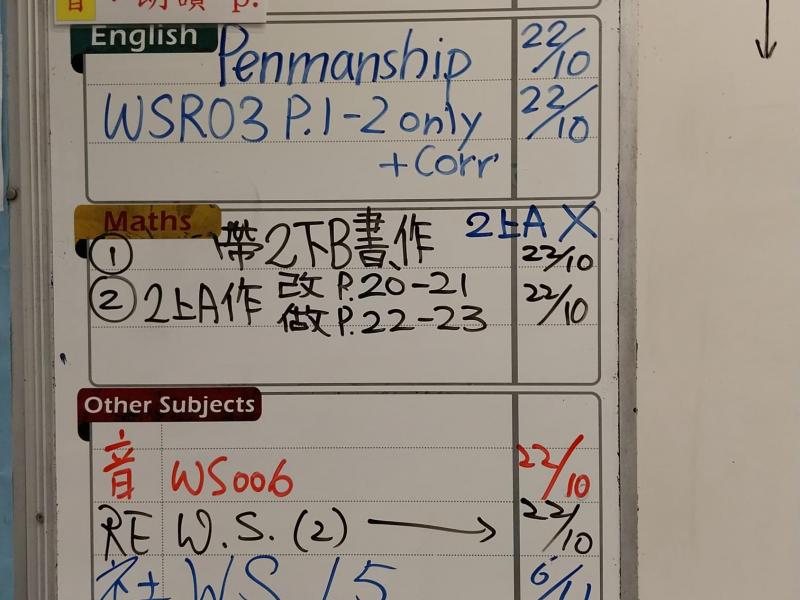 音．朗讀 p.
English Penmanship 22/10
WSR03 P.1-2 only 22/10
+ Corr
Maths 2上A X
① 帶2下B書、作 22/10
② 2上A作 改 P.20-21 22/10
做 P.22-23
Other Subjects
音 WS006 22/10
RE W.S. (2) → 22/10
社 WS 15 6/11